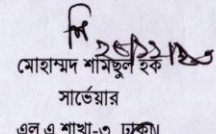 মোহাম্মদ শামিছুল হক
সার্ভেয়ার
এল এ শাখা-৩, ঢাকা।